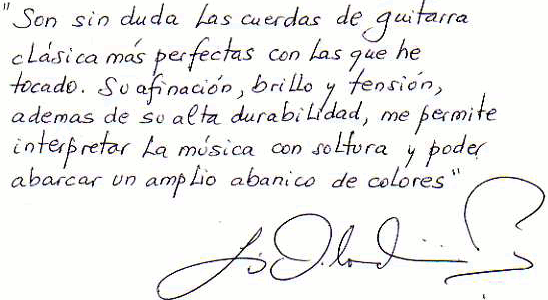 "Son sin duda las cuerdas de guitarra
clásica más perfectas con las que he
tocado. Su afinación, brillo y tensión,
ademas de su alta durabilidad, me permite
interpretar la música con soltura y poder
abarcar un amplio abanico de colores"